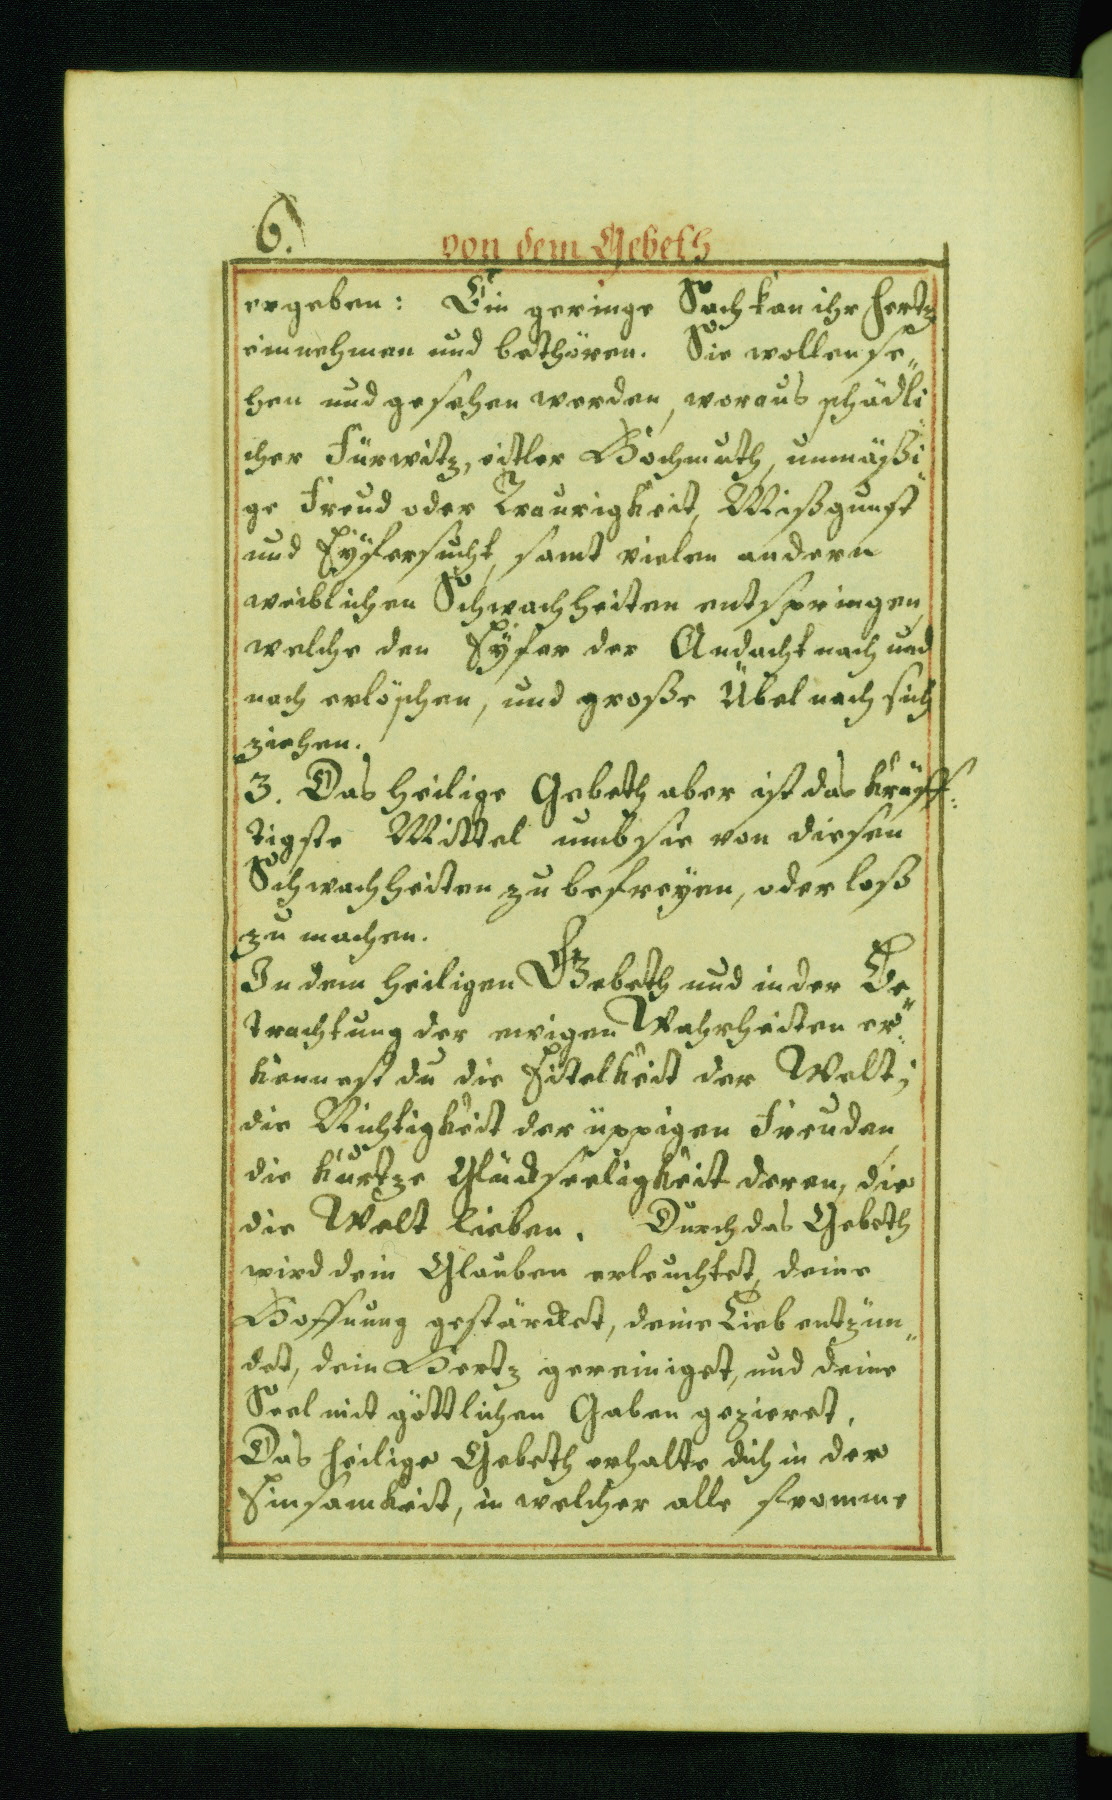 6.
von dem Gebeth
ergeben: Ein geringe Sach kan ihr hertz
einnehmen und bethören. Sie wollen se„
hen und gesehen werden, woraus schädli„
cher Fürwitz, eitler Hochmuth, unmäßi„
ge Freud oder Traurigkeit, Mißgunst
und Eÿfersucht, samt vielen andern
weiblichen Schwachheiten entspringen,
welche den Eÿfer der Andacht nach und
nach erlöschen, und große Übel nach sich
ziehen.
3. Das heilige Gebeth aber ist das kräff„
tigste Mittel umb sie von diesen
Schwachheiten zu befreÿen, oder loß
zu machen.
In dem heiligen Gebeth und in der Be„
trachtung der ewigen Wahrheiten er„
kennest du die Eitelkeit der Welt;
die Nichtigkeit der üppigen Freuden,
die kurtze Glückseeligkeit deren, die
die Welt lieben. Durch das Gebeth
wird dein Glauben erleuchtet, deine
Hoffnung gestärcket, deine Lieb entzün„
det, dein Hertz gereiniget, und deine
Seel mit göttlichen Gaben gezieret,
Das heilige Gebeth erhalte dich in der
Einsamkeit, in welcher alle fromme